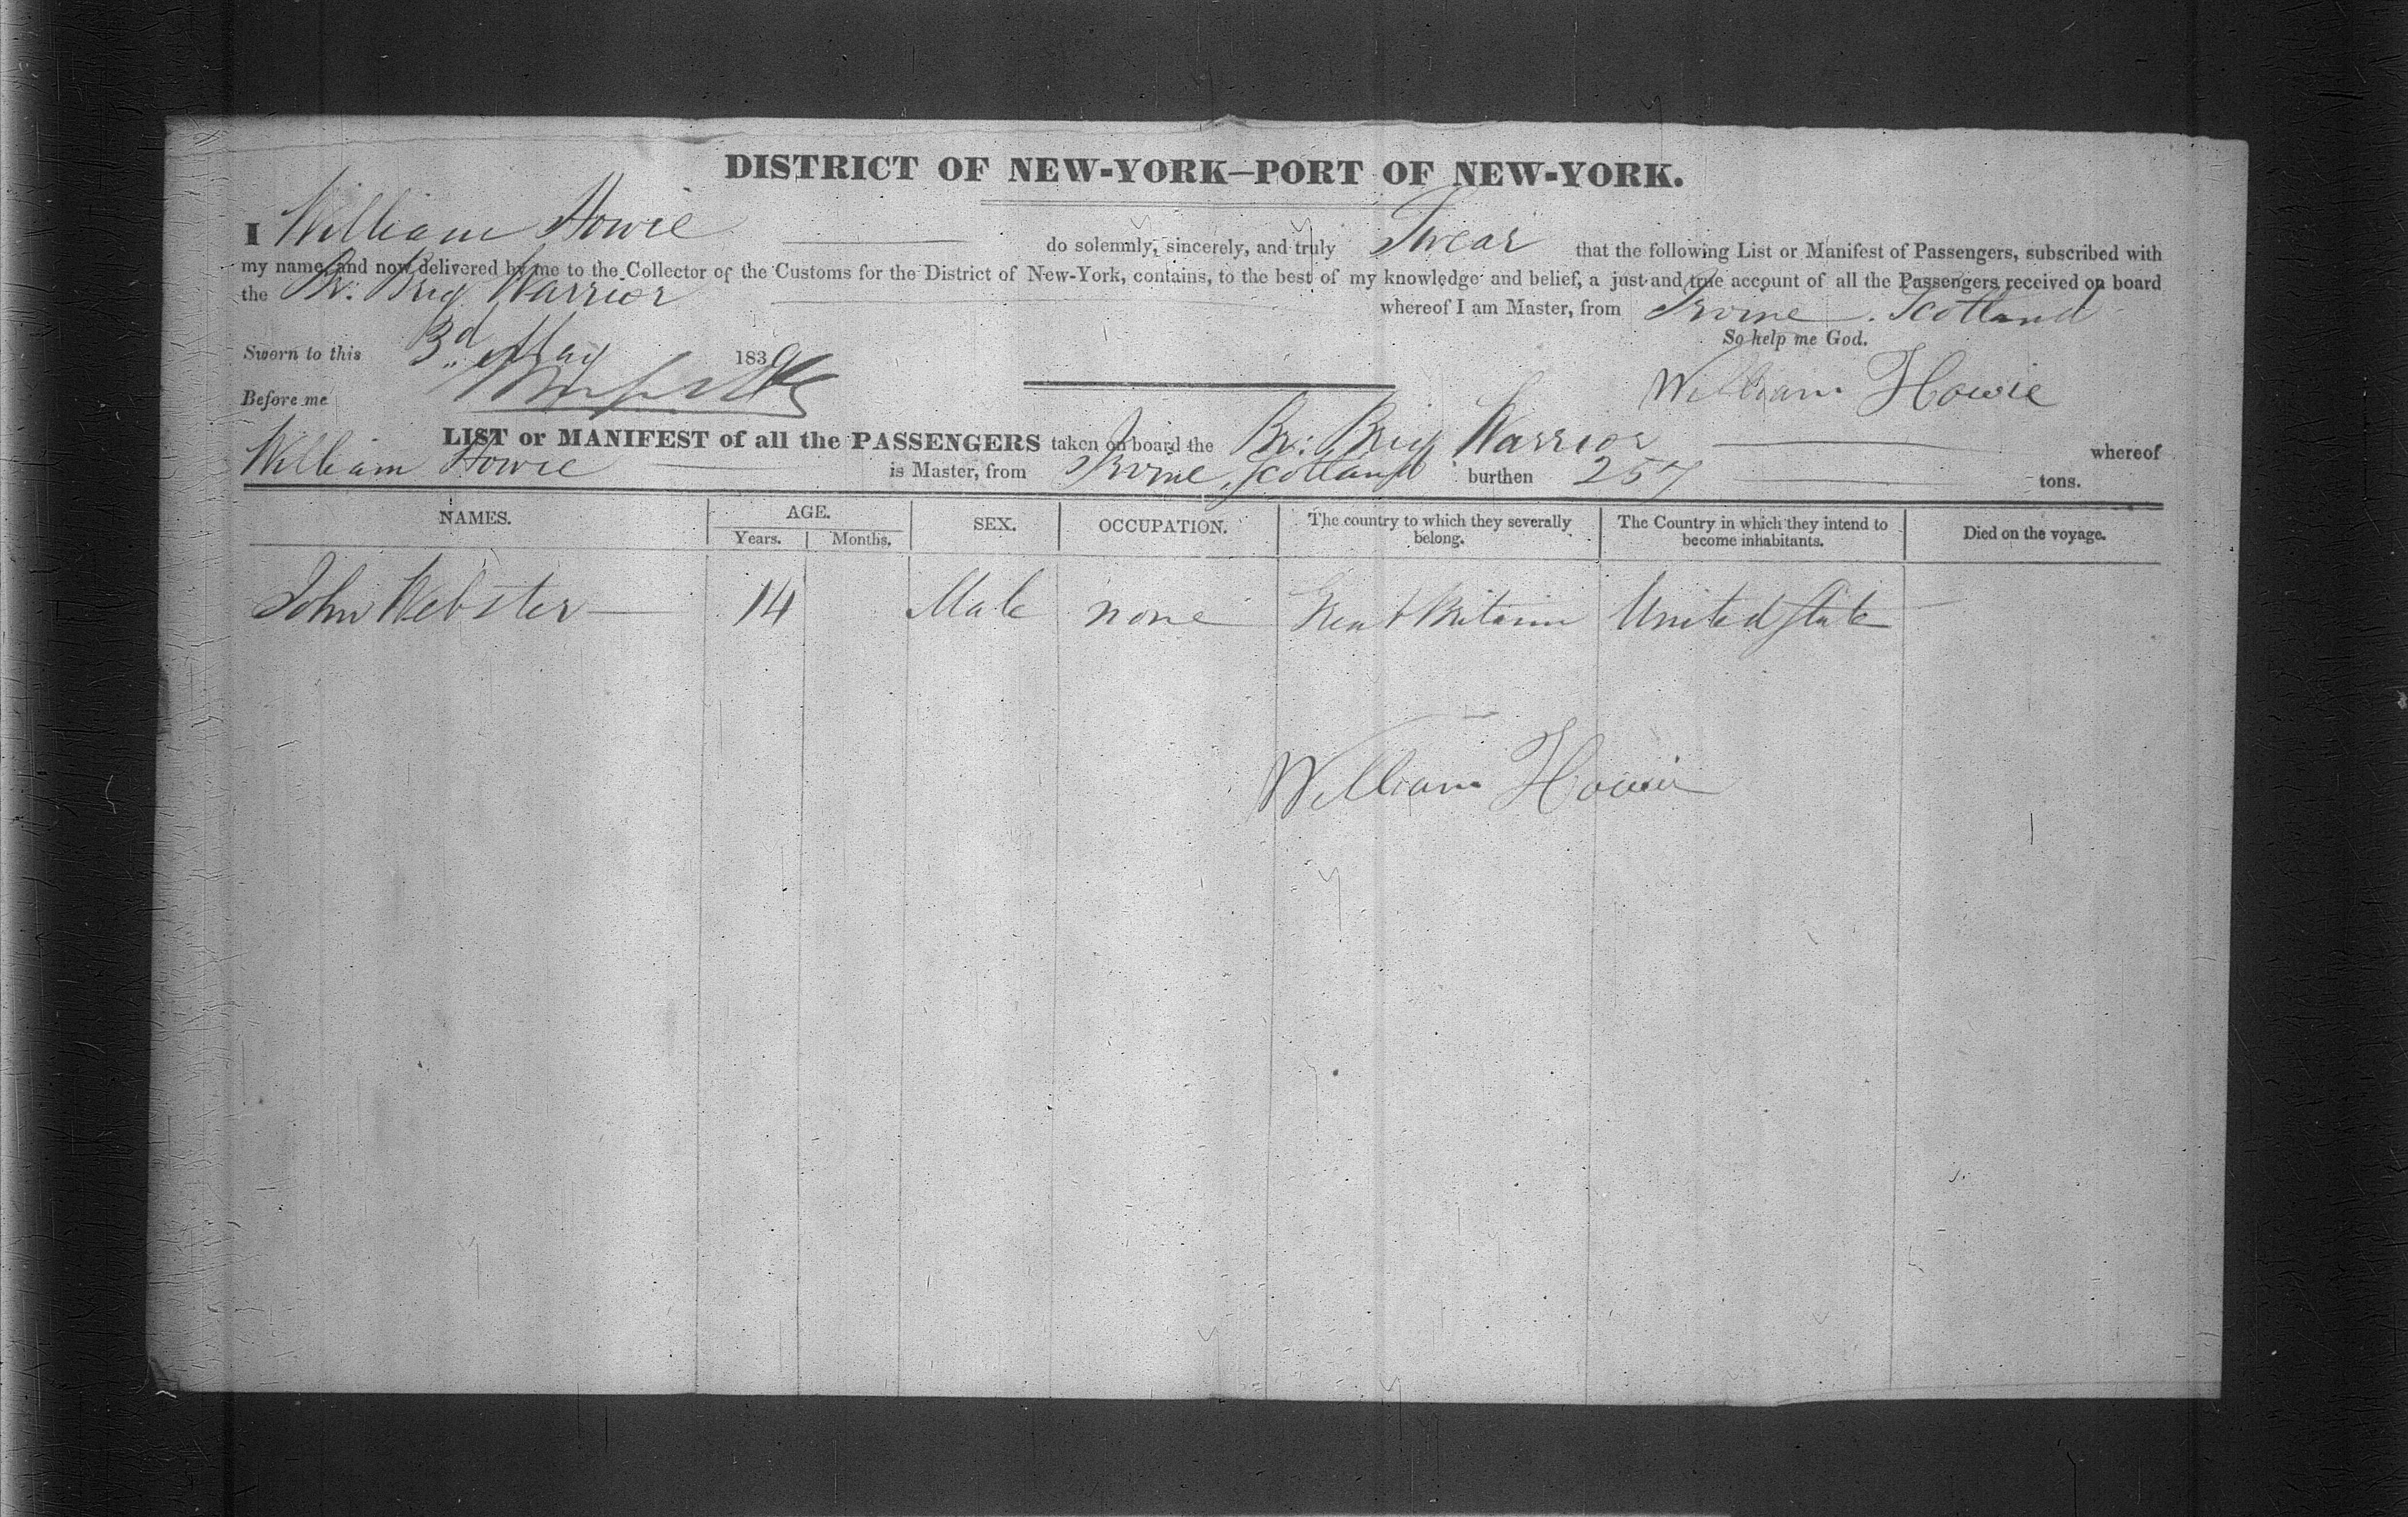 DISTRICT OF NEW-YORK—PORT OF NEW-YORK.
I William Howie do solemnly, sincerely, and truly Swear that the following List or Manifest of Passengers, subscribed with
my name, and now delivered by me to the Collector of the Customs for the District of New-York, contains, to the best of my knowledge and belief, a just and true account of all the Passengers received on board
the Br: Brig Warrior whereof I am Master, from Irvine, Scotland
So help me God.
Sworn to this 3d May 1839
William Howie
Before me
LIST or MANIFEST of all the PASSENGERS taken on board the Br: Brig Warrior whereof
William Howie is Master, from Irvine, Scotland burthen 257 tons.
NAMES. AGE. SEX. OCCUPATION. The country to which they severally belong. The Country in which they intend to become inhabitants. Died on the voyage.
Years. Months.
John Webster 14 Male none Great Britain United State
William Howie